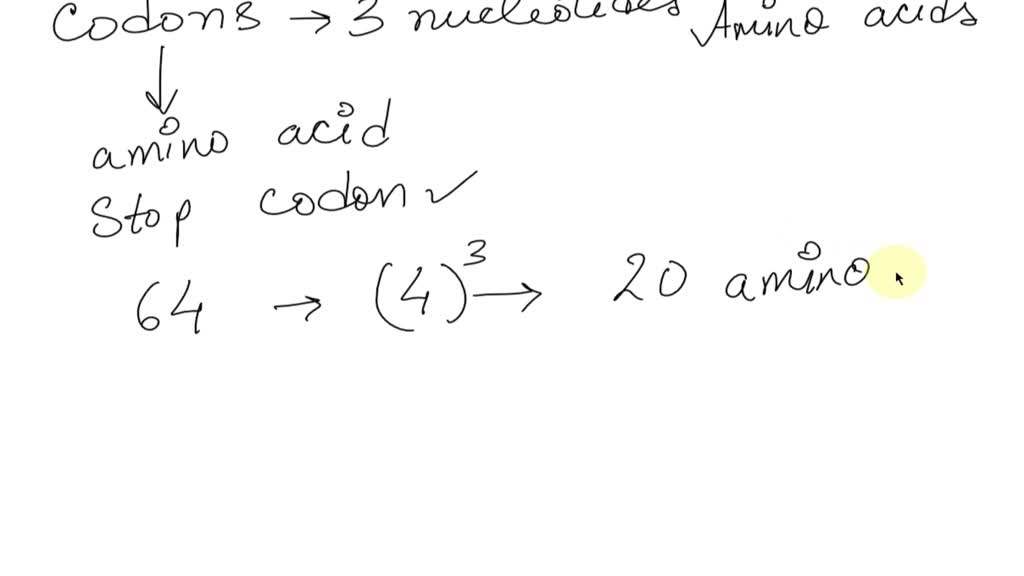 Codons → 3 nucleotides Amino acids
↓
amino acid
Stop codon ✓
64 → (4)³ → 20 amino